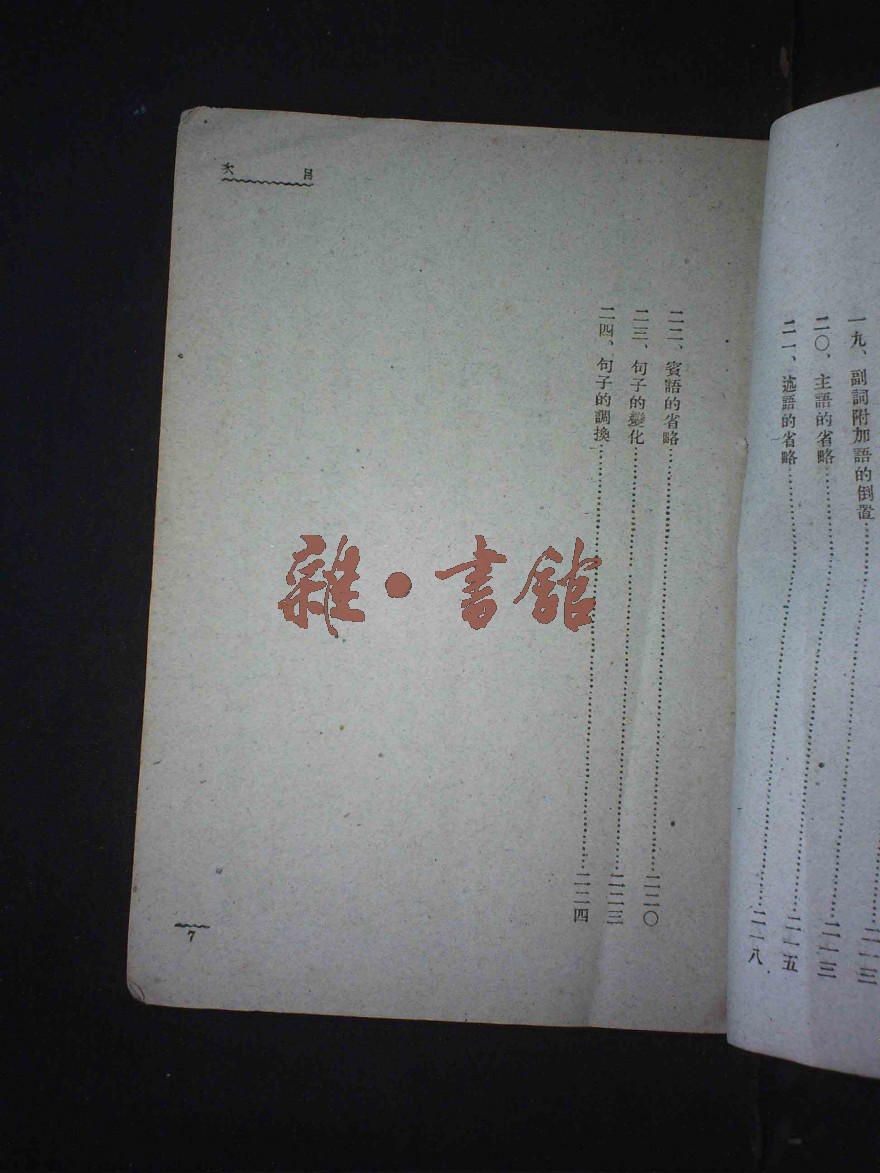 二一三
一九、副詞附加語的倒置……二一三
二〇、主語的省略……二一五
二一、述語的省略……二一八
目次
二二、賓語的省略……二二〇
二三、句子的變化……二二三
二四、句子的調換……二二四
7
雜·書館